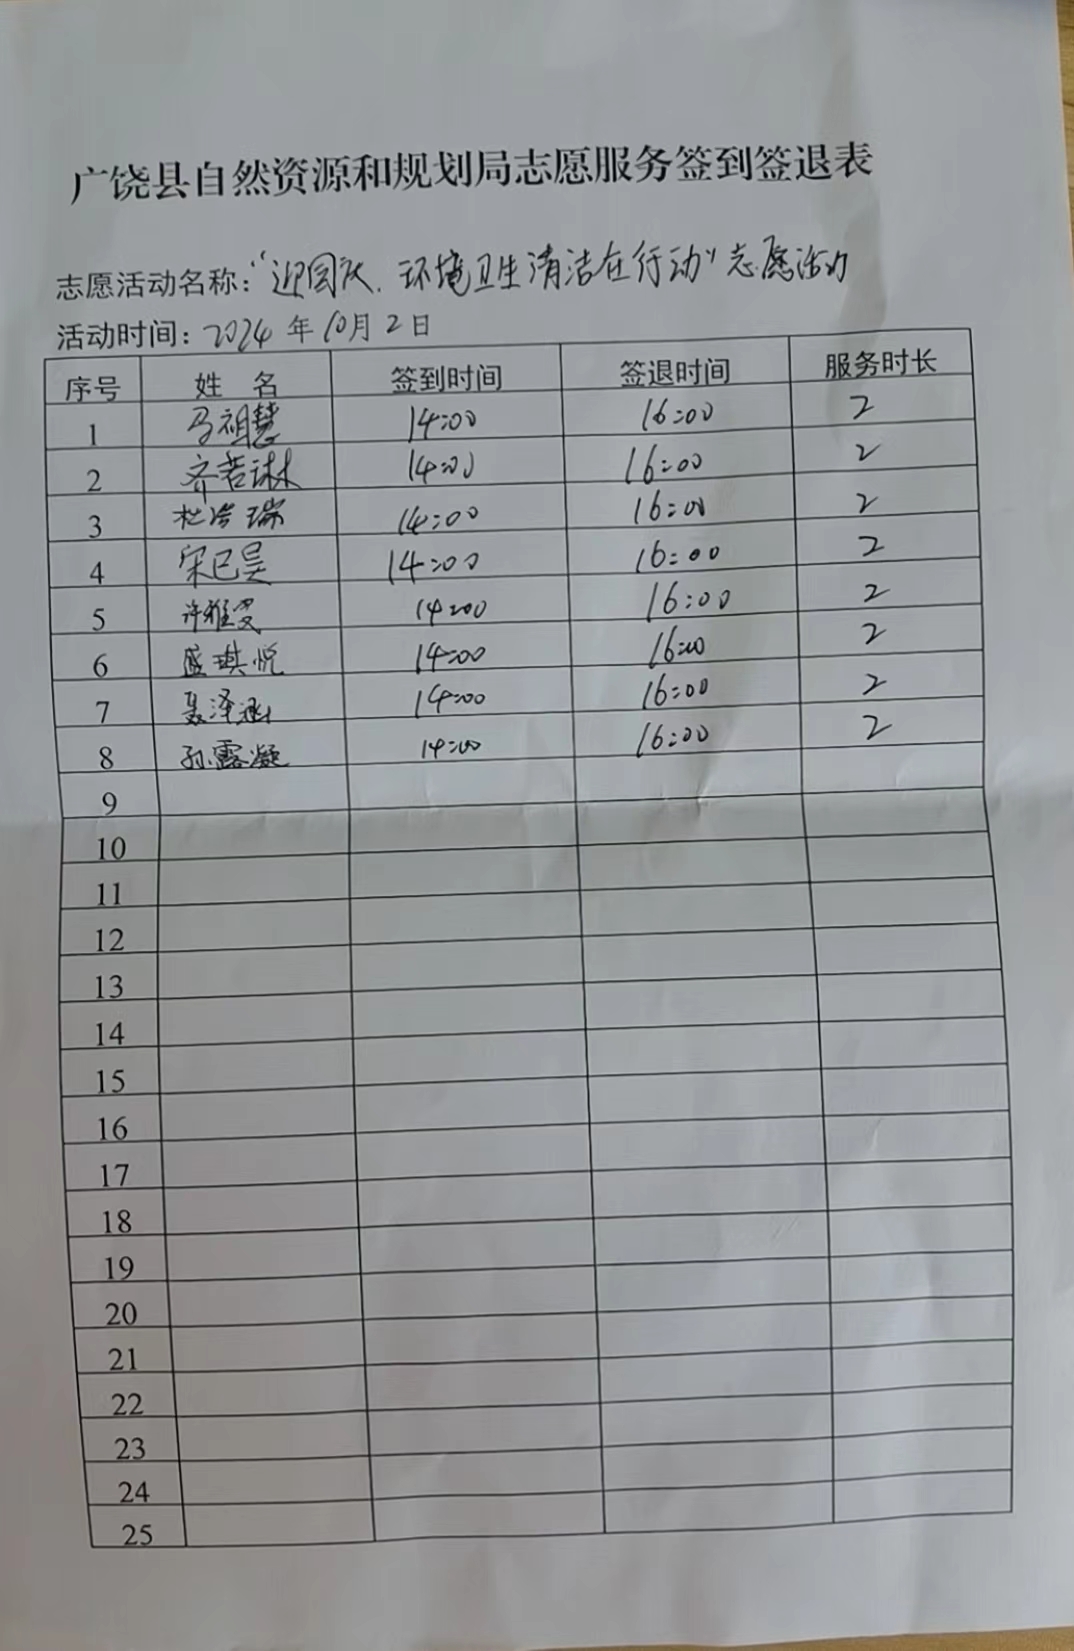 广饶县自然资源和规划局志愿服务签到签退表
志愿活动名称：“迎国庆、环境卫生清洁在行动”志愿活动
活动时间：2024年10月2日
序号 姓名 签到时间 签退时间 服务时长
1 马祖慧 14:00 16:00 2
2 齐若琳 14:00 16:00 2
3 杜 瑞 14:00 16:00 2
4 宋已昊 14:00 16:00 2
5 许雅雯 14:00 16:00 2
6 盛琪悦 14:00 16:00 2
7 聂泽涵 14:00 16:00 2
8 孙露凝 14:00 16:00 2
9
10
11
12
13
14
15
16
17
18
19
20
21
22
23
24
25